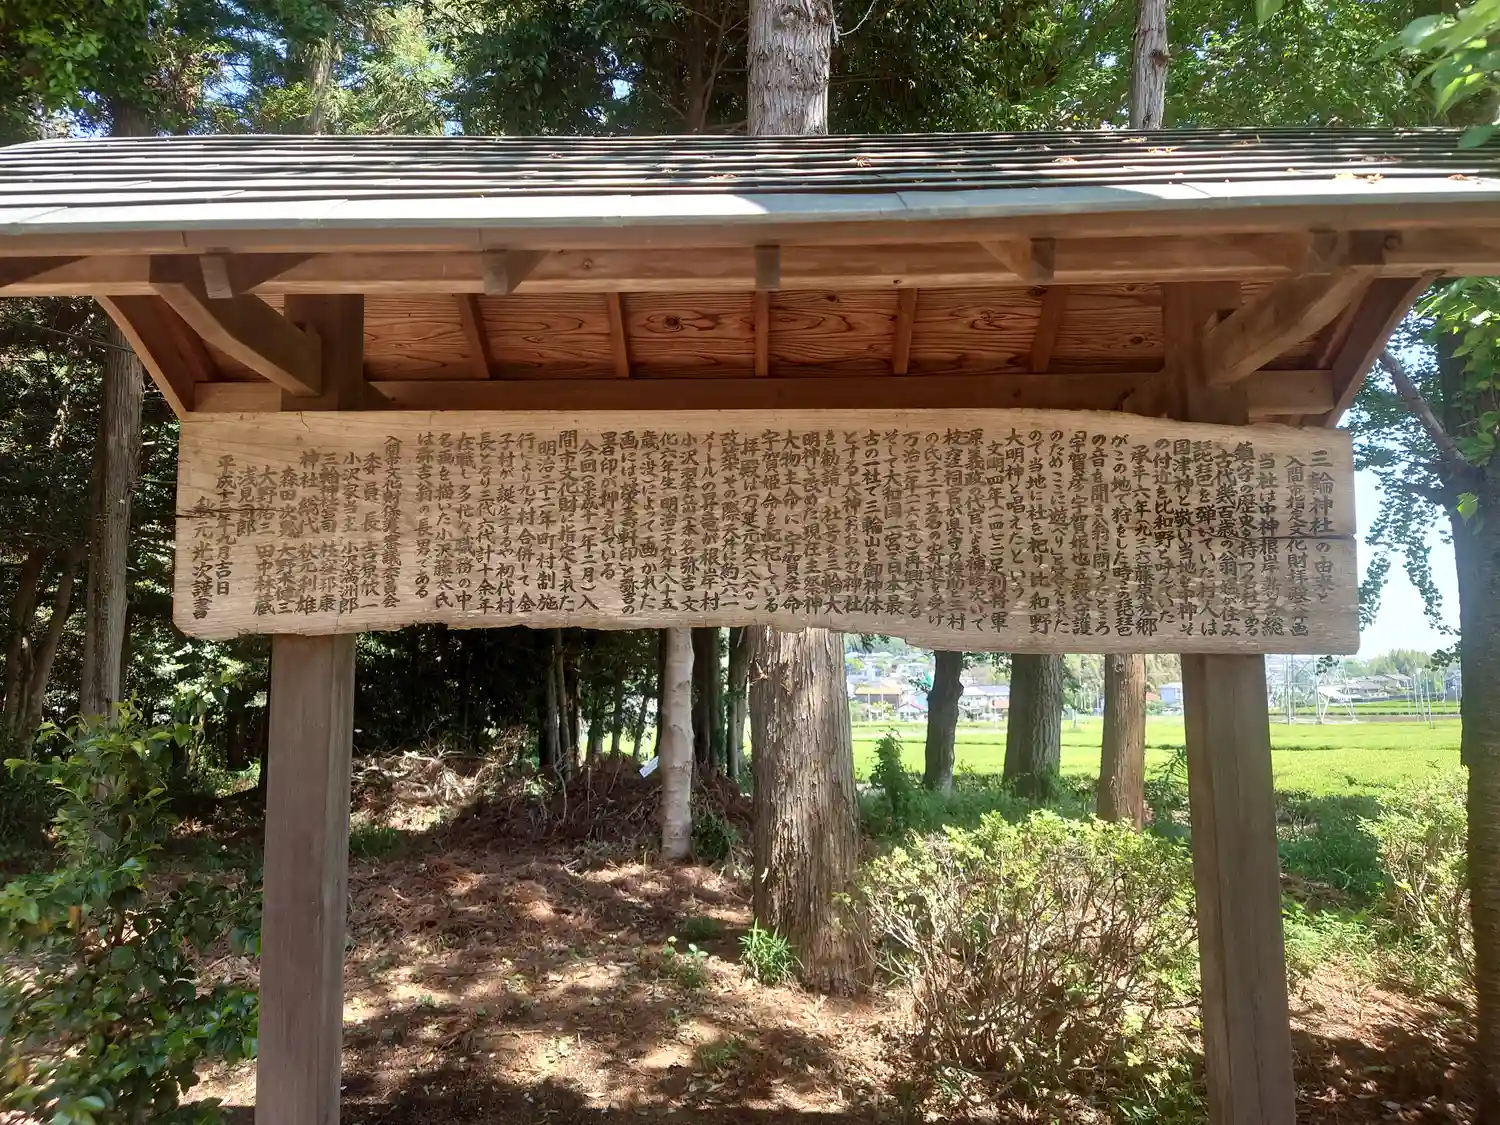 三輪神社の由来と
入間市指定文化財拝殿天井画
当社は中神根岸新久の総
鎮守の歴史を持つ名社である
古代幾百歳の翁が住み
琵琶を弾いていた村人は
国津神と敬い当地を中神そ
の付近を比和野と呼んでいた
承平六年(九三六)藤原秀郷
がこの地で狩をした時の琵琶
の音を聞き翁に問うたところ
「宇賀彦・宇賀姫也五穀守護
のためここに遊べりと答えられた
ので当地に社を祀り比和野
大明神と唱えたという
文明四年(一四七二)足利将軍
源義政の代官による補修次いで
枝窪祠官が県守の援助と三村
の氏子二十五名の寄進を受け
万治二年(一六五九)再興する
そして大和国一宮で日本最
古の一社で三輪山を御神体
とする大神(おおみわ)神社
を勧請し社号を三輪大
明神と改めた現在主祭神
大物主命に宇賀彦命
宇賀姫命を配祀している
拝殿は万延元年(一八六〇)
改築しその際天井(約六一
メートル)の昇竜が根岸村
小沢翠岳(本名弥吉文
化六年生明治二十九年八十五
歳で没)によって画かれた
画には榮壽軒印と弥吉の
署名印の押されている
今回(平成十一年二月)入
間市文化財に指定された
明治二十二年町村制施
行により九村合併して金
子村が誕生するや初代村
長となり三代六代計十余年
在職し多忙な職務の中
名画を描いた小沢藤太氏
は弥吉翁の長男である
入間市文化財保護審議委員会
委員長 吉原依一
小沢家当主 小沢満洲郎
三輪神社宮司 枝窪邦康
神社総代 秋元利雄
森田次寛 大野米健三
大野祐二 田中林蔵
浅見司郎
平成十一年九月吉日
秋元光次謹書